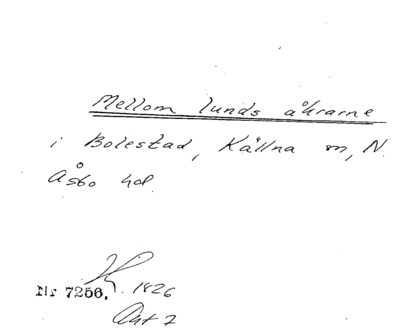 Mellom lunds åkrarne
i Bolestad, Källna sn, N.
Åsbo hd.
Nr 7256. 1826
Akt 7